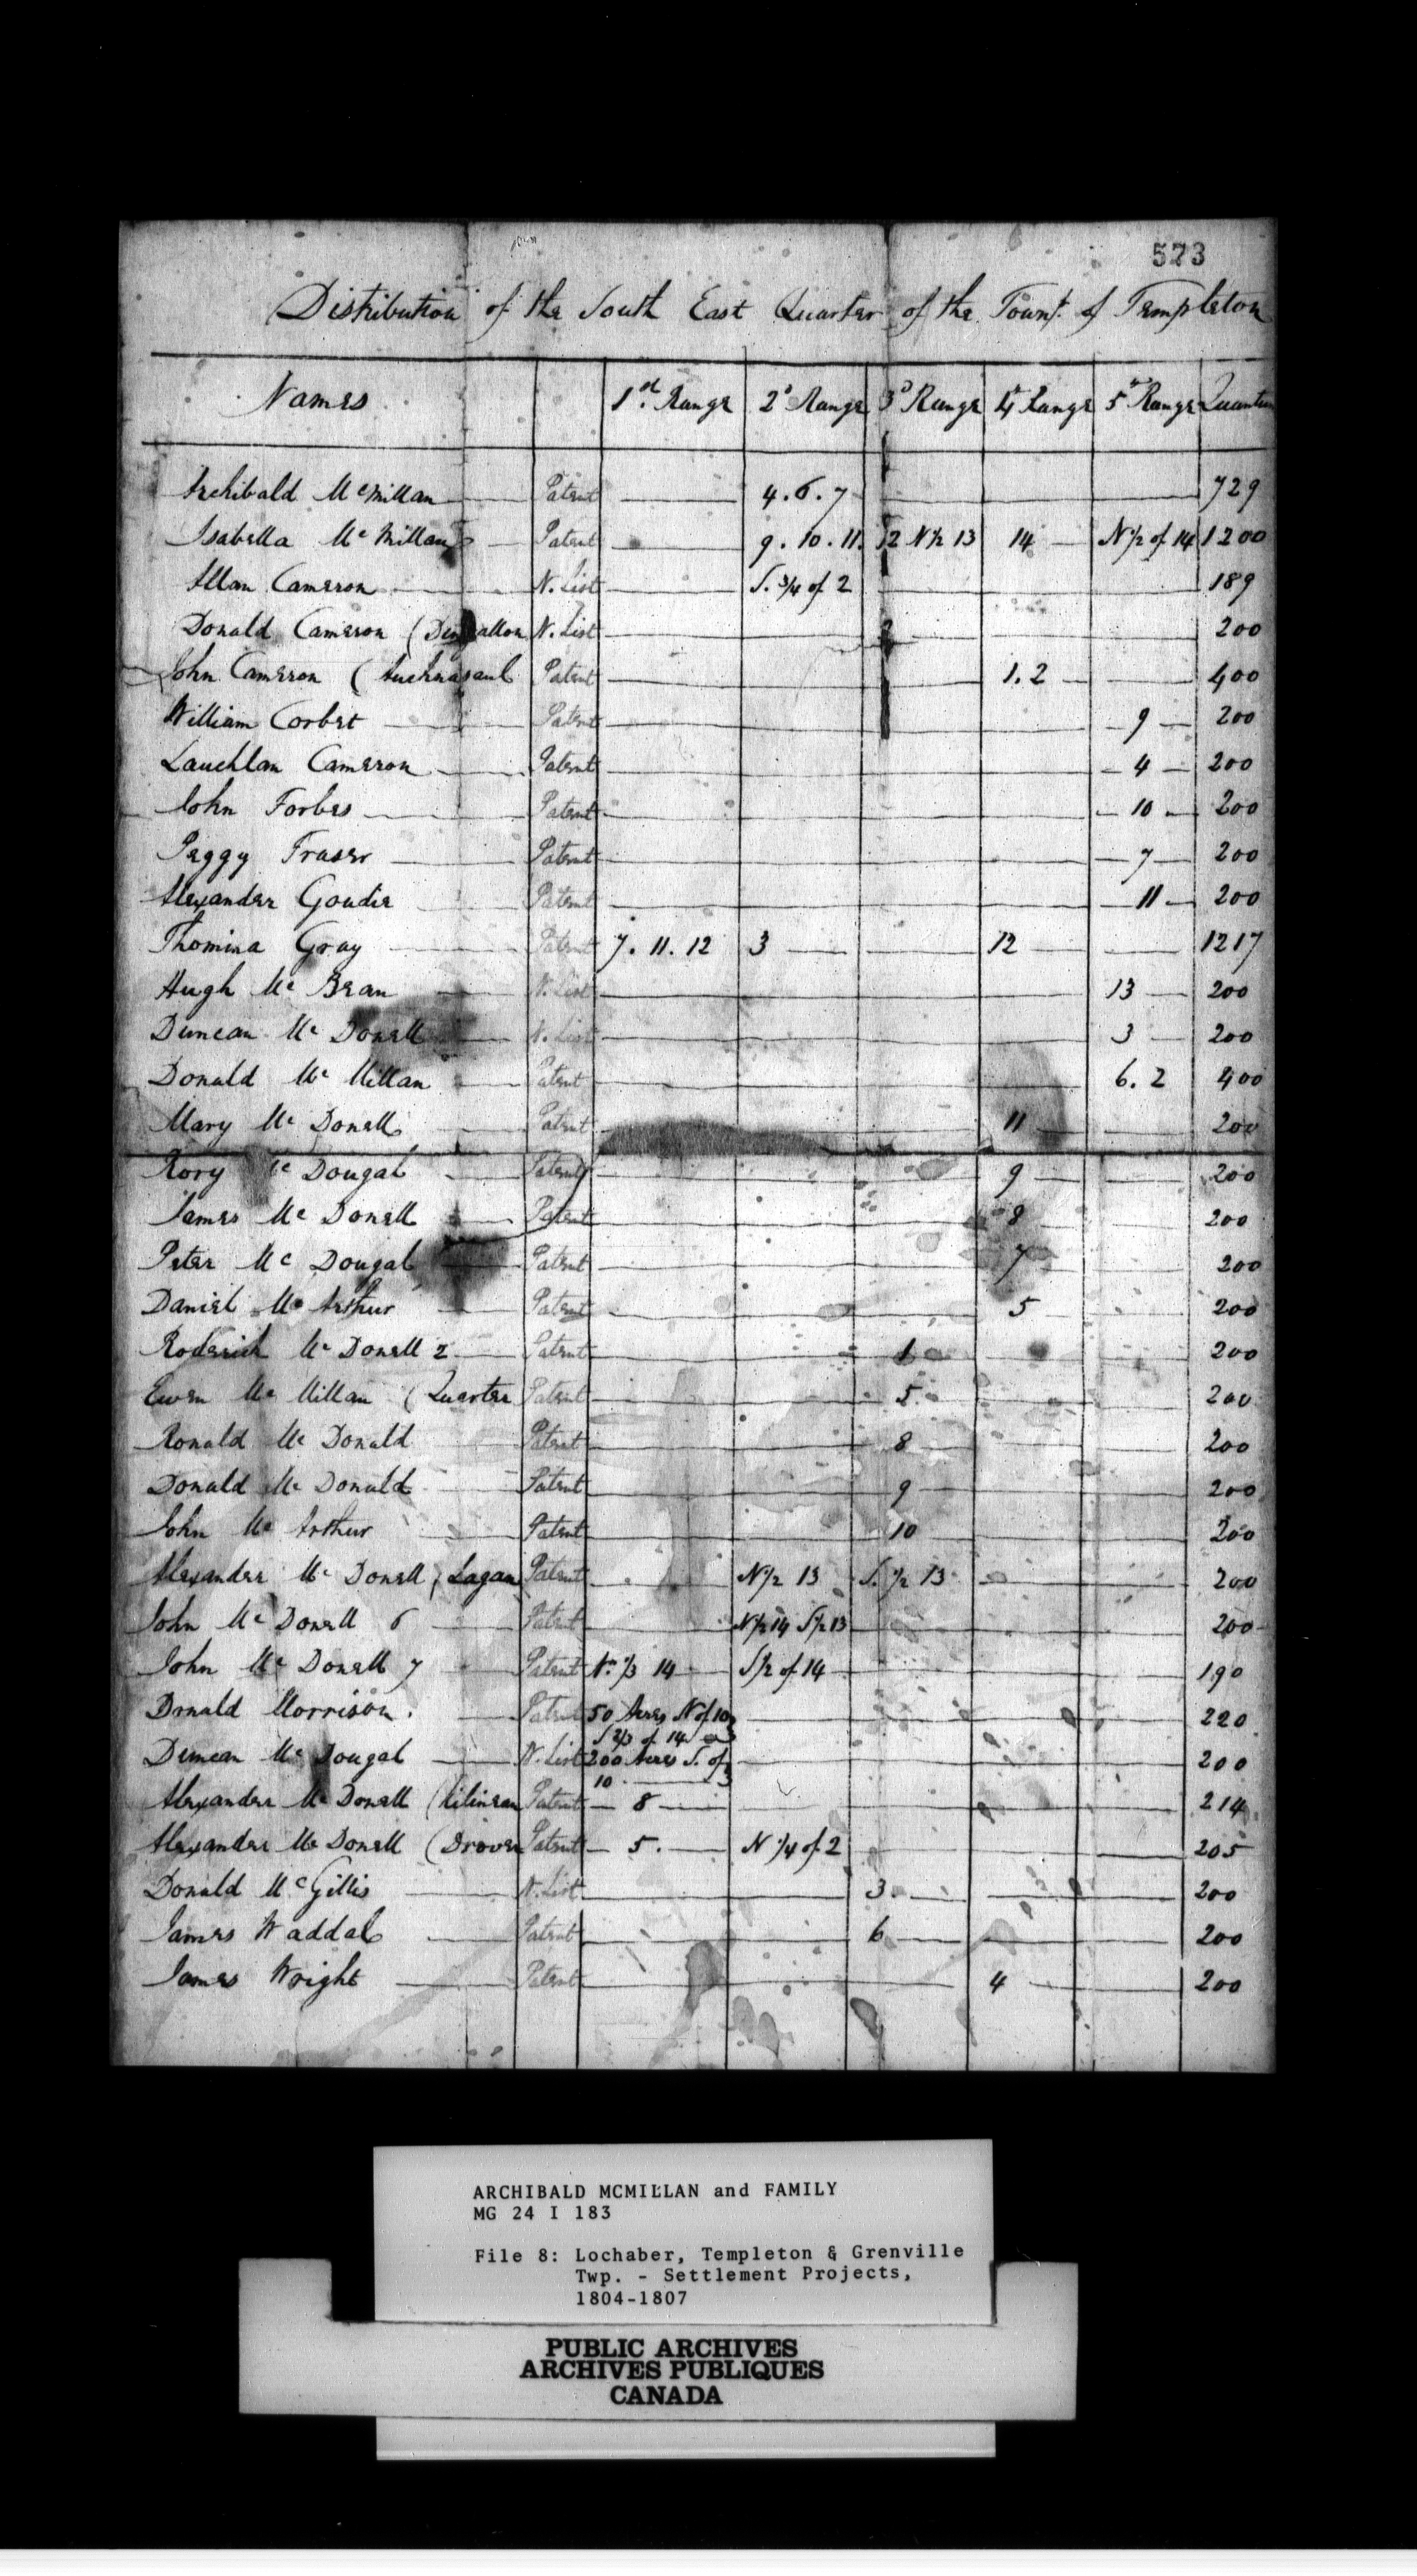 573
Distribution of the South East Quarter of the Townp. of Templeton
Names 1st. Range 2d Range 3d Range 4th Range 5th Range Quantum
Archibald McMillan Patent 4. 6. 7 729
Isabella McMillan Patent 9. 10. 11. 12 N½ 13 14 N½ of 14 1200
Allan Cameron N. List S. ¾ of 2 189
Donald Cameron ( N. List 2 200
John Cameron ( Auchnasaul Patent 1. 2 400
William Corbet Patent 9 200
Lauchlan Cameron Patent 4 200
John Forbes Patent 10 200
Peggy Fraser Patent 7 200
Alexander Goudie Patent 11 200
Thomina Gray Patent 7. 11. 12 3 12 1217
Hugh Mc Bean N. List 13 200
Duncan Mc Donell N. List 3 200
Donald Mc Millan Patent 6. 2 400
Mary Mc Donell Patent 11 200
Rory Mc Dougal Patent 9 200
James Mc Donell Patent 8 200
Peter Mc Dougal Patent 7 200
Daniel Mc Arthur Patent 5 200
Roderick Mc Donell 2 Patent 1 200
Ewen Mc Millan ( Quarter Patent 5. 200
Ronald Mc Donald Patent 8 200
Donald Mc Donald Patent 9 200
John Mc Arthur Patent 10 200
Alexander Mc Donell ( Lagan Patent N½ 13 S. ½ 13 200
John Mc Donell 6 Patent N½ 14 S½ 13 200
John Mc Donell 7 Patent Nn ⅓ 14 S½ of 14 190
Donald Morrison. Patent 50 Acres N of 10 220
S ⅔ of 14
Duncan Mc Dougal N. List 200 Acres S. of 200
10
Alexander Mc Donell (Kilinean Patent 8 214
Alexander Mc Donell (Drover Patent 5. N ¼ of 2 205
Donald McGillis N. List 3. 200
James Waddal Patent 6 200
James Wright Patent 4 200
ARCHIBALD MCMILLAN and FAMILY
MG 24 I 183
File 8: Lochaber, Templeton & Grenville
Twp. - Settlement Projects,
1804-1807
PUBLIC ARCHIVES
ARCHIVES PUBLIQUES
CANADA